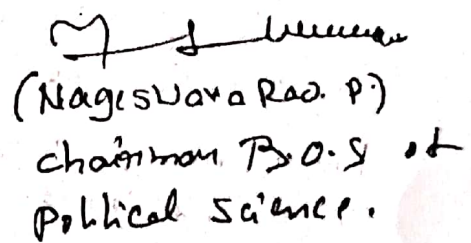 (Nageswara Rao. P.)
chairman B.O.S of
political science.